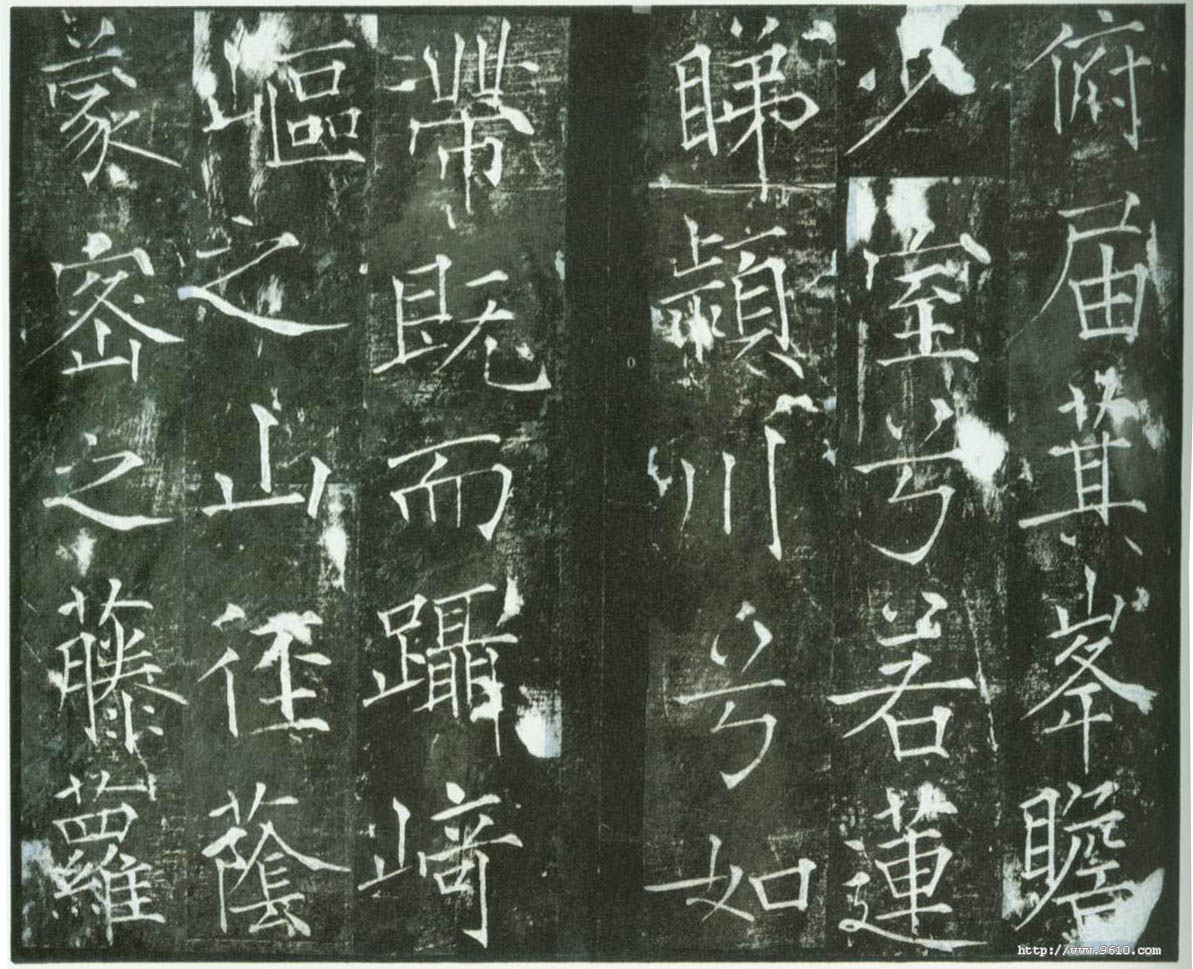 俯届其峯瞻
少室兮若蓮
睇潁川兮如
帶既而躡崎
嶇之山徑蔭
蒙密之藤蘿
http://www.9610.com